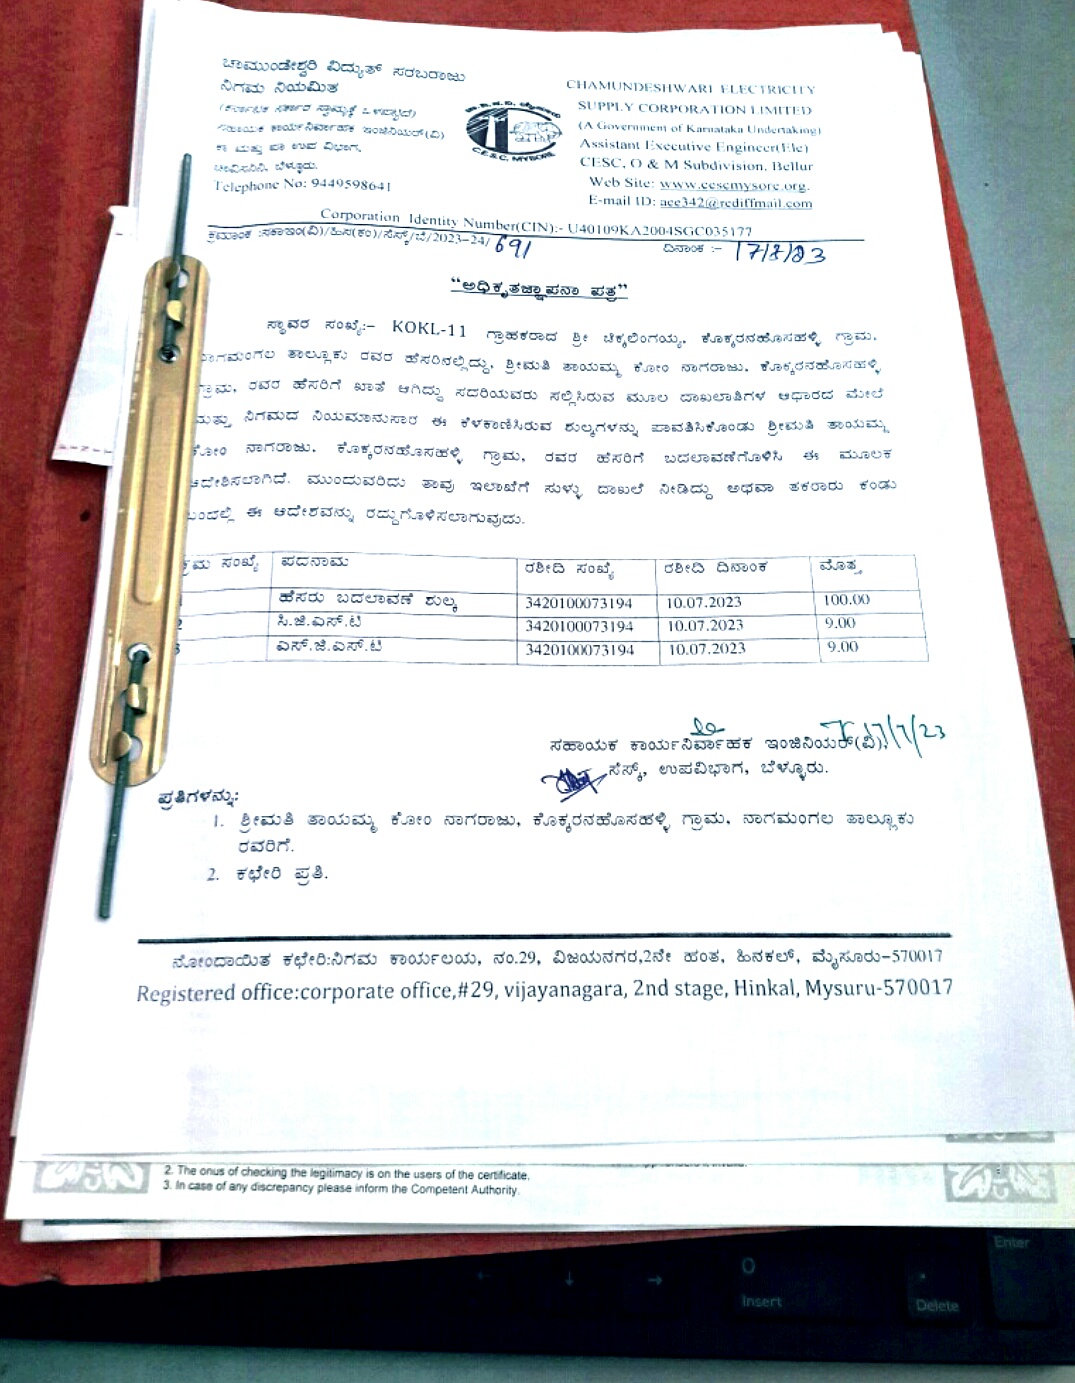 ಚಾಮುಂಡೇಶ್ವರಿ ವಿದ್ಯುತ್ ಸರಬರಾಜು
ನಿಗಮ ನಿಯಮಿತ
(ಕರ್ನಾಟಕ ಸರ್ಕಾರ ಸ್ವಾಮ್ಯಕ್ಕೆ ಒಳಪಟ್ಟಿದೆ)
ಸಹಾಯಕ ಕಾರ್ಯನಿರ್ವಾಹಕ ಇಂಜಿನಿಯರ್(ವಿ)
ಕಾ ಮತ್ತು ಪಾ ಉಪ ವಿಭಾಗ,
ಚಾವಿಸನಿನಿ, ಬೆಳ್ಳೂರು.
Telephone No: 9449598641
C.E.S.C, MYSORE
CHAMUNDESHWARI ELECTRICITY
SUPPLY CORPORATION LIMITED
(A Government of Karnataka Undertaking)
Assistant Executive Engineer(Ele)
CESC, O & M Subdivision, Bellur
Web Site: www.cescmysore.org.
E-mail ID: aee342@rediffmail.com
Corporation Identity Number(CIN):- U40109KA2004SGC035177
ಕ್ರಮಾಂಕ :ಸಕಾಇಂ(ವಿ)/ಹಿಸ(ಕಂ)/ಸೆಸ್ಕ್/ಬೆ/2023-24/ 691 ದಿನಾಂಕ :-
“ಅಧಿಕೃತಜ್ಞಾಪನಾ ಪತ್ರ”
ಸ್ಥಾವರ ಸಂಖ್ಯೆ:- KOKL-11 ಗ್ರಾಹಕರಾದ ಶ್ರೀ ಚಿಕ್ಕಲಿಂಗಯ್ಯ, ಕೊಕ್ಕರನಹೊಸಹಳ್ಳಿ ಗ್ರಾಮ,
ನಾಗಮಂಗಲ ತಾಲ್ಲೂಕು ರವರ ಹೆಸರಿನಲ್ಲಿದ್ದು, ಶ್ರೀಮತಿ ತಾಯಮ್ಮ ಕೋಂ ನಾಗರಾಜು, ಕೊಕ್ಕರನಹೊಸಹಳ್ಳಿ
ಗ್ರಾಮ, ರವರ ಹೆಸರಿಗೆ ಖಾತೆ ಆಗಿದ್ದು ಸದರಿಯವರು ಸಲ್ಲಿಸಿರುವ ಮೂಲ ದಾಖಲಾತಿಗಳ ಆಧಾರದ ಮೇಲೆ
ಮತ್ತು ನಿಗಮದ ನಿಯಮಾನುಸಾರ ಈ ಕೆಳಕಾಣಿಸಿರುವ ಶುಲ್ಕಗಳನ್ನು ಪಾವತಿಸಿಕೊಂಡು ಶ್ರೀಮತಿ ತಾಯಮ್ಮ
ಕೋಂ ನಾಗರಾಜು, ಕೊಕ್ಕರನಹೊಸಹಳ್ಳಿ ಗ್ರಾಮ, ರವರ ಹೆಸರಿಗೆ ಬದಲಾವಣೆಗೊಳಿಸಿ ಈ ಮೂಲಕ
ಆದೇಶಿಸಲಾಗಿದೆ. ಮುಂದುವರಿದು ತಾವು ಇಲಾಖೆಗೆ ಸುಳ್ಳು ದಾಖಲೆ ನೀಡಿದ್ದು ಅಥವಾ ತಕರಾರು ಕಂಡು
ಬಂದಲ್ಲಿ ಈ ಆದೇಶವನ್ನು ರದ್ದುಗೊಳಿಸಲಾಗುವುದು.
ಕ್ರಮ ಸಂಖ್ಯೆ ಪದನಾಮ ರಶೀದಿ ಸಂಖ್ಯೆ ರಶೀದಿ ದಿನಾಂಕ ಮೊತ್ತ
1 ಹೆಸರು ಬದಲಾವಣೆ ಶುಲ್ಕ 3420100073194 10.07.2023 100.00
2 ಸಿ.ಜಿ.ಎಸ್.ಟಿ 3420100073194 10.07.2023 9.00
3 ಎಸ್.ಜಿ.ಎಸ್.ಟಿ 3420100073194 10.07.2023 9.00
17/7/23
ಸಹಾಯಕ ಕಾರ್ಯನಿರ್ವಾಹಕ ಇಂಜಿನಿಯರ್(ವಿ),
ಸೆಸ್ಕ್, ಉಪವಿಭಾಗ, ಬೆಳ್ಳೂರು.
ಪ್ರತಿಗಳನ್ನು:
1. ಶ್ರೀಮತಿ ತಾಯಮ್ಮ ಕೋಂ ನಾಗರಾಜು, ಕೊಕ್ಕರನಹೊಸಹಳ್ಳಿ ಗ್ರಾಮ, ನಾಗಮಂಗಲ ತಾಲ್ಲೂಕು
ರವರಿಗೆ.
2. ಕಛೇರಿ ಪ್ರತಿ.
ನೋಂದಾಯಿತ ಕಛೇರಿ:ನಿಗಮ ಕಾರ್ಯಲಯ, ನಂ.29, ವಿಜಯನಗರ,2ನೇ ಹಂತ, ಹಿನಕಲ್, ಮೈಸೂರು-570017
Registered office:corporate office,#29, vijayanagara, 2nd stage, Hinkal, Mysuru-570017
2. The onus of checking the legitimacy is on the users of the certificate.
3. In case of any discrepancy please inform the Competent Authority.
Enter
0
Insert
.
Delete